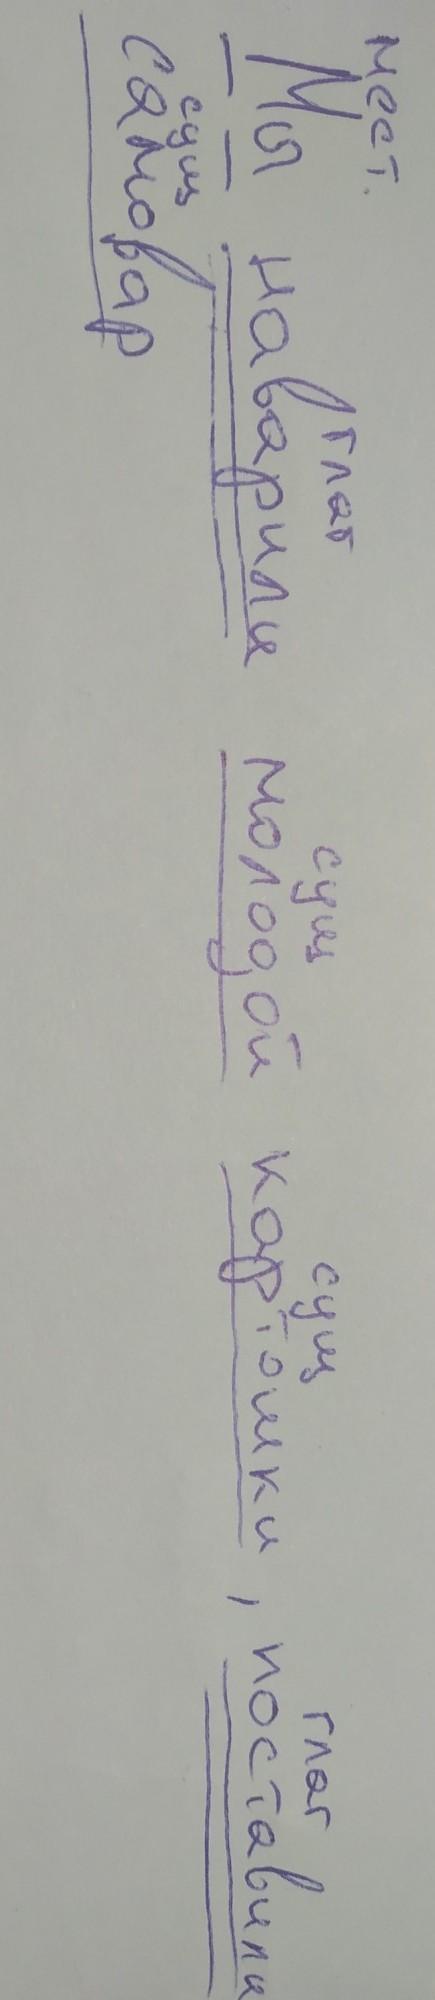 мест. глаг сущ сущ глаг
Мы наварили молодой картошки, поставили
сущ
самовар